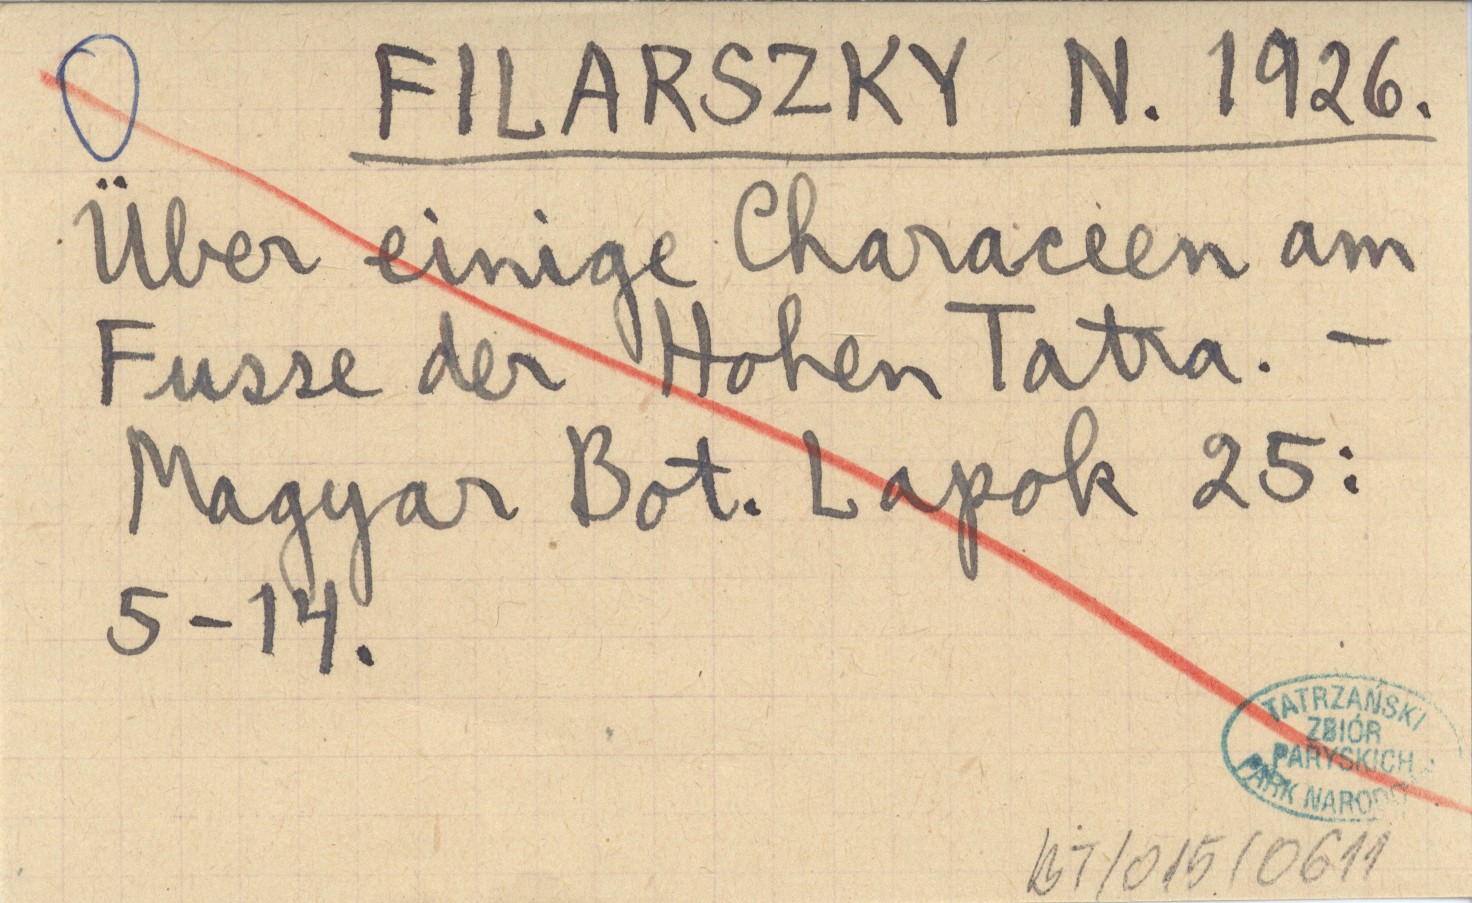 FILARSZKY N. 1926.
Über einige Characeen am
Fusse der Hohen Tatra. –
Magyar Bot. Lapok 25:
5-14.
TATRZAŃSKI
ZBIÓR
PARYSKICH
PARK NARODO
BT/015/0611